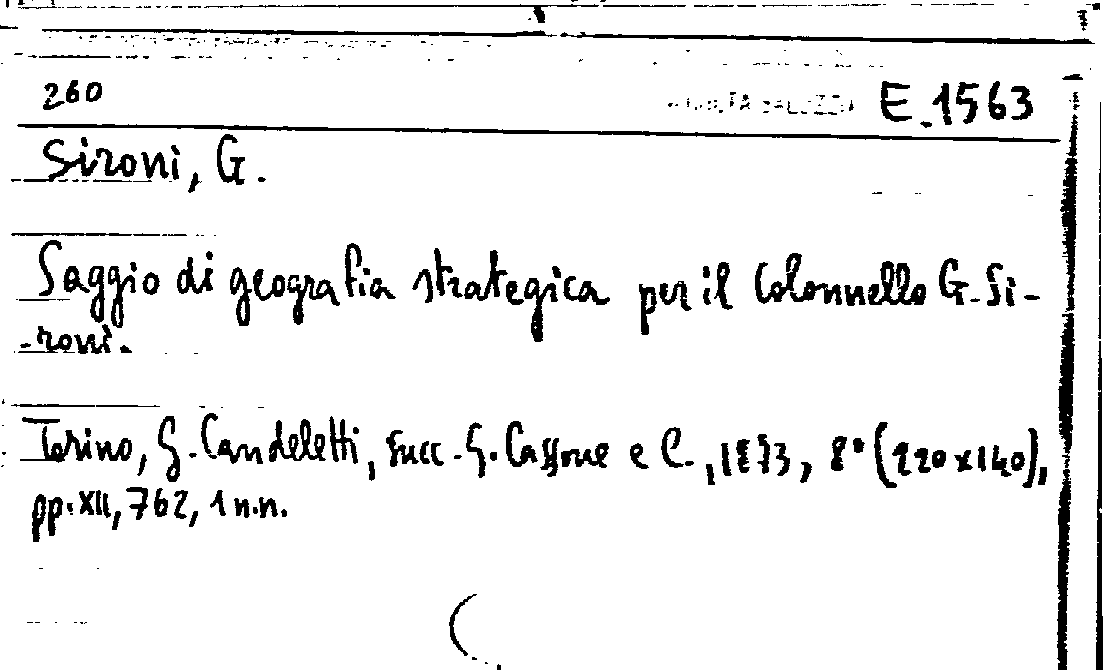 260 E.1563
Sironi, G.
Saggio di geografia strategica per il Colonnello G. Si-
-roni.
Torino, G. Candeletti, succ. G. Cassone e C., 1873, 8° (220x140),
pp. XII, 762, 1 n.n.